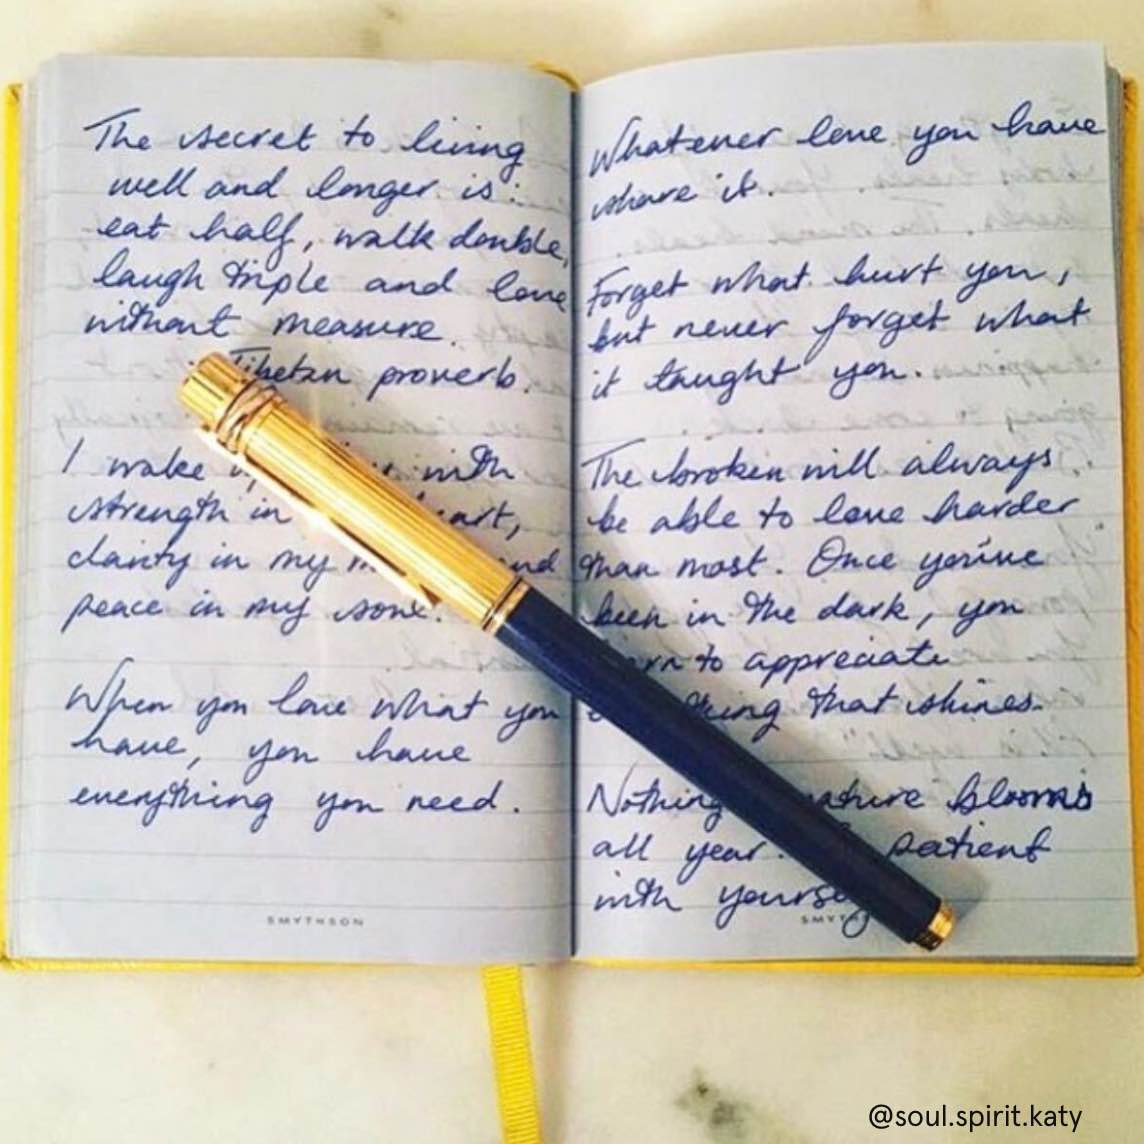 The secret to living
well and longer is:
eat half, walk double,
laugh triple and love
without measure.
Tibetan proverb.
I wake with
strength in
clarity in my
peace in my
When you love what you
have, you have
everything you need.
SMYTHSON
Whatever love you have
share it.
Forget what hurt you,
but never forget what
it taught you.
The broken will always
be able to love harder
than most. Once you've
been in the dark, you
to appreciate
that shines.
Nothing blooms
all year. patient
with
@soul.spirit.katy